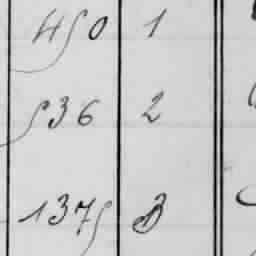 450 1
536 2
1375 3